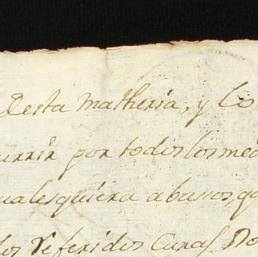 desta matheria, y Co
urrir por todos los med
ualesquiera abussos q
los referidos Curas Do